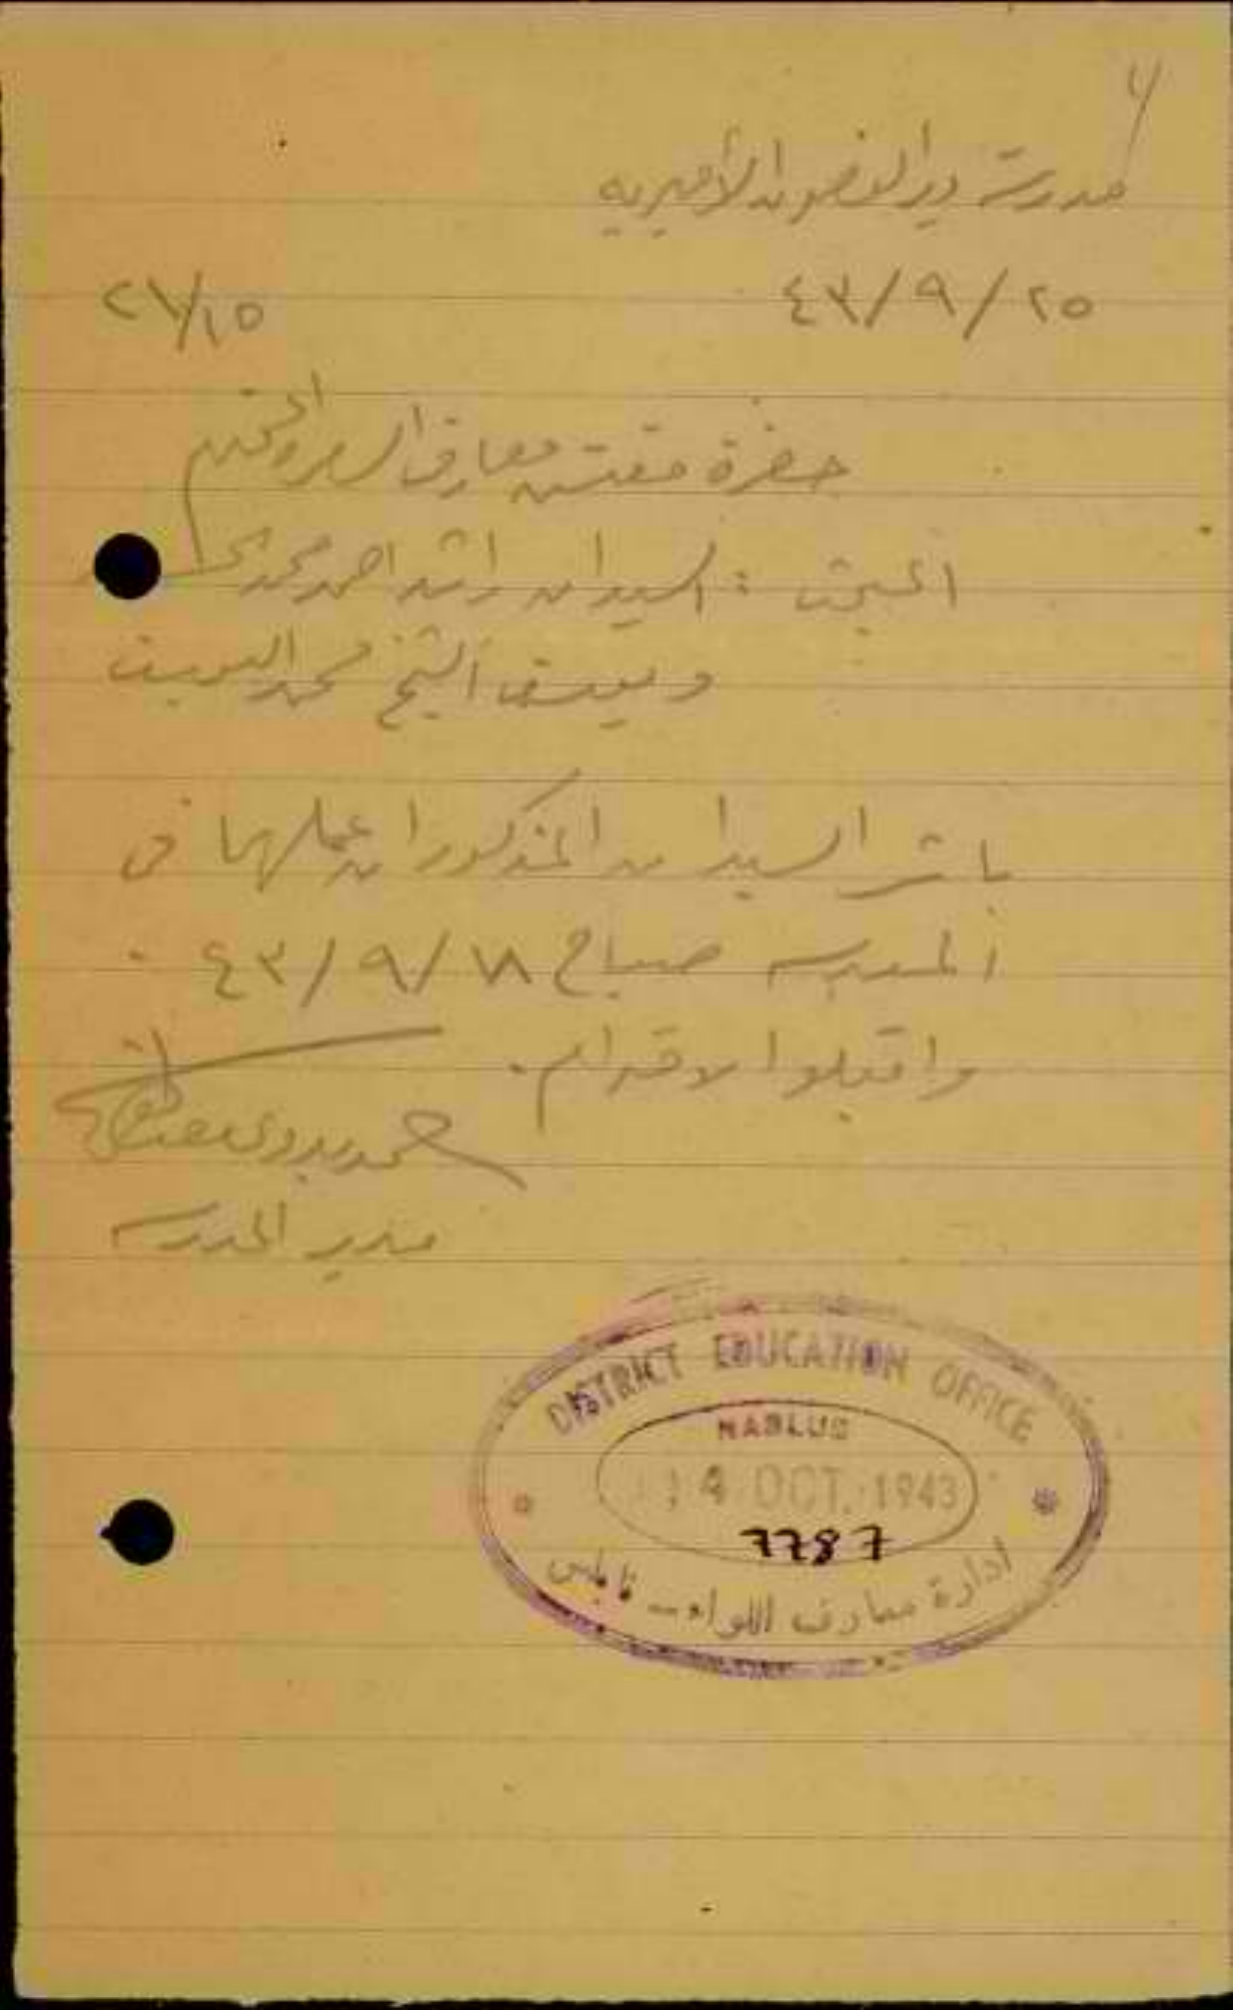 مدرسة دير الغصون الأميرية
٤٣/٩/٢٥
٢٦/١٥
حضرة مفتش معارف اللواء المحترم
المبحث : السيدان راشد احمد محمد
ويوسف الشيخ محمد اليوسف
باشر السيدان المذكوران عملهما في
المدرسة صباح ٤٣/٩/١٨ .
واقبلوا الاحترام .
محمد بدوي
مدير المدرسة
DISTRICT EDUCATION OFFICE
NABLUS
4 OCT. 1943
7787
ادارة معارف اللواء - نابلس